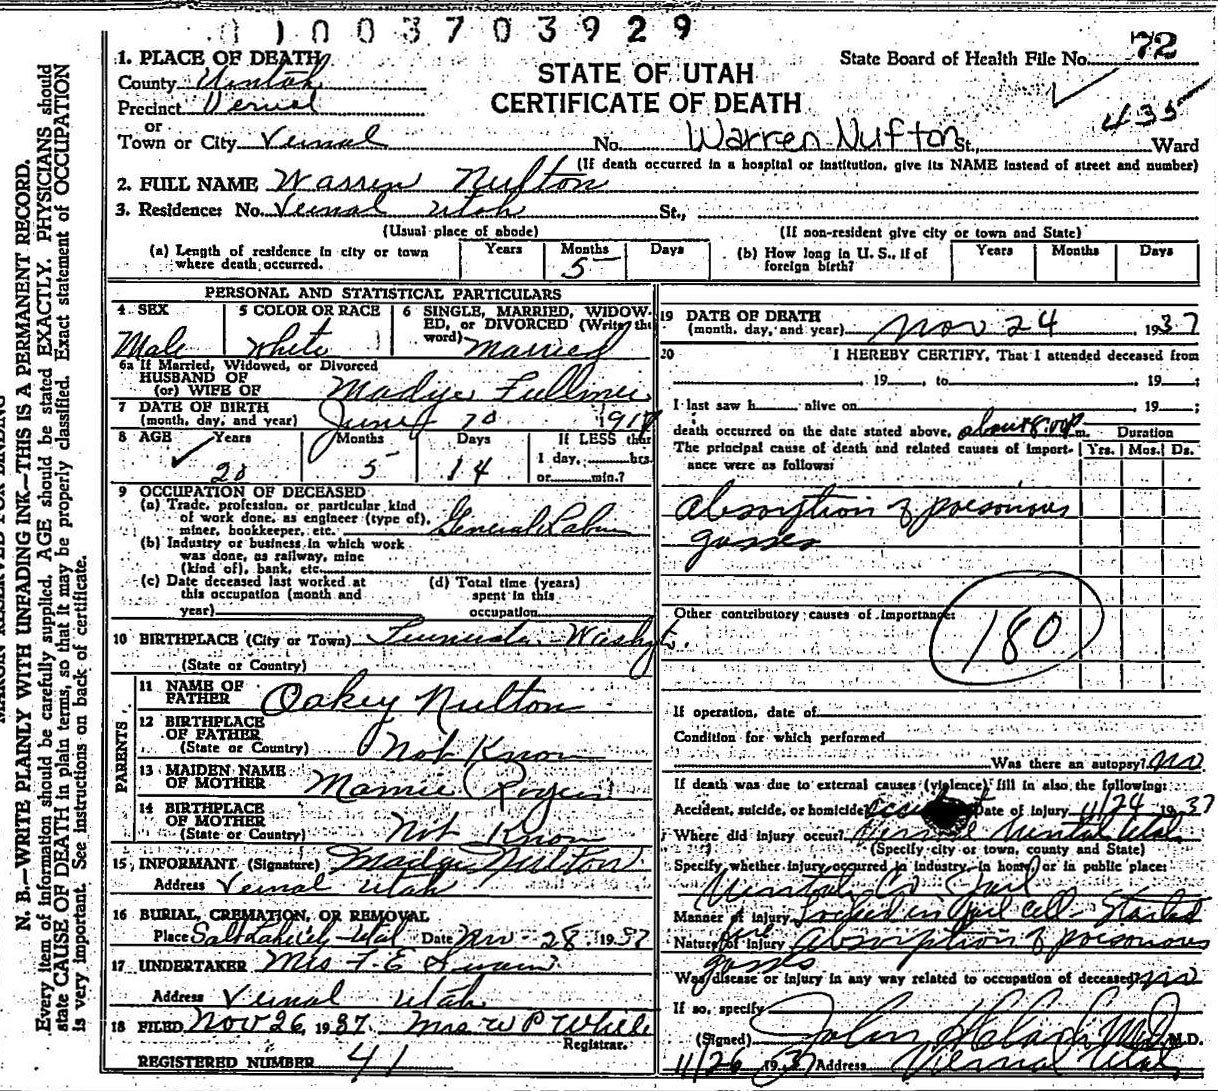 01003703929
1. PLACE OF DEATH
County Uintah
Precinct Vernal
or
Town or City Vernal
STATE OF UTAH
CERTIFICATE OF DEATH
State Board of Health File No. 72
435
No. Warren Nufton St., Ward
(If death occurred in a hospital or institution, give its NAME instead of street and number)
2. FULL NAME Warren Nulton
3. Residence: No. Vernal Utah St.,
(Usual place of abode) (If non-resident give city or town and State)
(a) Length of residence in city or town where death occurred. Years Months 5 Days
(b) How long in U. S., if of foreign birth? Years Months Days
PERSONAL AND STATISTICAL PARTICULARS
4 SEX
Male
5 COLOR OR RACE
White
6 SINGLE, MARRIED, WIDOW-
ED, or DIVORCED (Write the
word) Married
6a If Married, Widowed, or Divorced
HUSBAND OF
(or) WIFE OF Madge Fullmer
7 DATE OF BIRTH
(month, day, and year) June 10 1917
8 AGE Years Months Days If LESS than
20 5 14 1 day, hrs.
or min.?
9 OCCUPATION OF DECEASED
(a) Trade, profession, or particular kind
of work done, as engineer (type of),
miner, bookkeeper, etc. General Labor
(b) Industry or business in which work
was done, as railway, mine
(kind of), bank, etc.
(c) Date deceased last worked at
this occupation (month and
year)
(d) Total time (years)
spent in this
occupation
10 BIRTHPLACE (City or Town)
(State or Country)
PARENTS
11 NAME OF
FATHER Oakey Nulton
12 BIRTHPLACE
OF FATHER
(State or Country) Not Know
13 MAIDEN NAME
OF MOTHER Mamie Rogers
14 BIRTHPLACE
OF MOTHER
(State or Country) Not Know
15 INFORMANT (Signature) Madge Nulton
Address Vernal Utah
16 BURIAL, CREMATION, OR REMOVAL
Place Salt Lake City Utah Date Nov 28 1937
17 UNDERTAKER Mrs F. E. Swain
Address Vernal Utah
18 FILED Nov 26, 1937. Mrs W P White
Registrar.
REGISTERED NUMBER 41
19 DATE OF DEATH
(month, day, and year) Nov 24, 1937
20 I HEREBY CERTIFY, That I attended deceased from
, 19 , to , 19 ;
I last saw h alive on , 19 ;
death occurred on the date stated above, about 8:00 p m.
The principal cause of death and related causes of import-
ance were as follows:
Duration
Yrs. Mos. Ds.
absorption of poisonous
gasses
Other contributory causes of importance:
180
If operation, date of
Condition for which performed
Was there an autopsy? no
If death was due to external causes (violence) fill in also the following:
Accident, suicide, or homicide? Date of injury 11/24 1937
Where did injury occur? Vernal Uintah Utah
(Specify city or town, county and State)
Specify whether injury occurred in industry, in home, or in public place:
Uintah Co Jail
Manner of injury Locked in Jail cell - Started
fire
Nature of injury absorption of poisonous
gasses
Was disease or injury in any way related to occupation of deceased? no
If so, specify
(Signed) John H Clark M.D. M.D.
11/26 1937 Address Vernal Utah
N. B.—WRITE PLAINLY WITH UNFADING INK—THIS IS A PERMANENT RECORD.
Every item of information should be carefully supplied. AGE should be stated EXACTLY. PHYSICIANS should
state CAUSE OF DEATH in plain terms, so that it may be properly classified. Exact statement of OCCUPATION
is very important. See instructions on back of certificate.